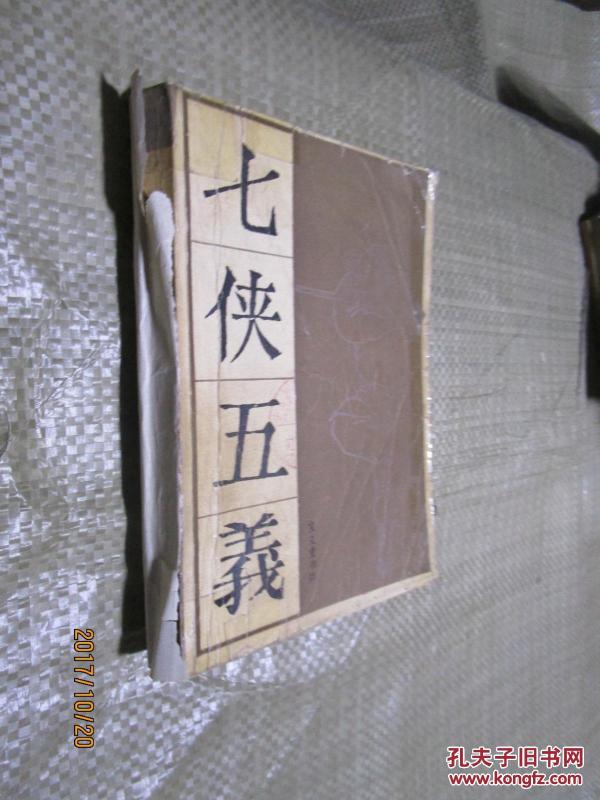 七侠五義
宝文堂书店
2017/10/20
孔夫子旧书网
www.kongfz.com